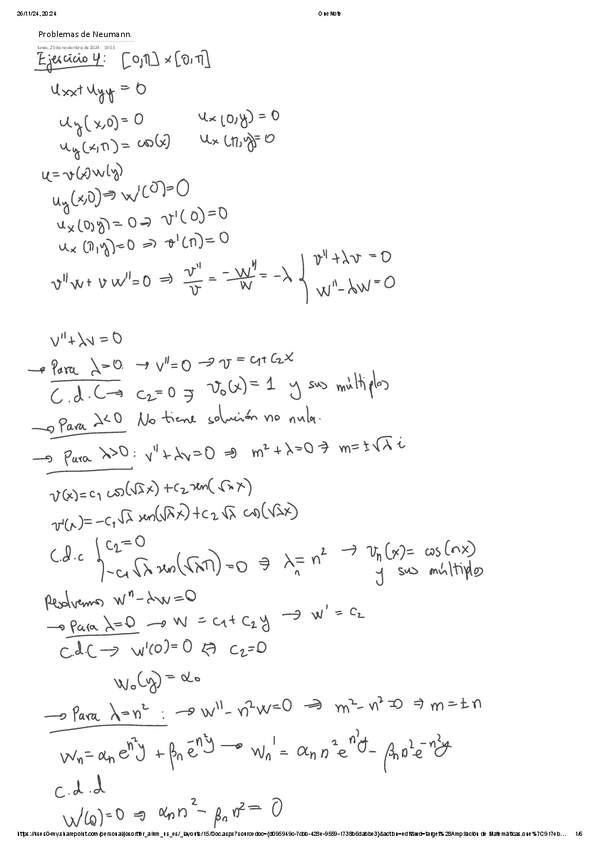 26/11/24, 20:24 OneNote
Problemas de Neumann.
lunes, 25 de noviembre de 2024 19:53
Ejercicio 4: [0,π] × [0,π]
uxx + uyy = 0
uy(x,0) = 0 ux(0,y) = 0
uy(x,π) = cos(x) ux(π,y) = 0
u = v(x)w(y)
uy(x,0) ⇒ w'(0) = 0
ux(0,y) = 0 ⇒ v'(0) = 0
ux(π,y) = 0 ⇒ v'(π) = 0
v''w + v w'' = 0 ⇒ v''/v = -w''/w = -λ { v'' + λv = 0
w'' - λw = 0
v'' + λv = 0
→ Para λ=0. → v'' = 0 → v = c1 + c2x
C.d.C → c2 = 0 ⇒ v0(x) = 1 y sus múltiplos
→ Para λ<0 No tiene solución no nula.
→ Para λ>0: v'' + λv = 0 ⇒ m² + λ = 0 ⇒ m = ±√λ i
v(x) = c1 cos(√λx) + c2 sen(√λx)
v'(x) = -c1√λ sen(√λx) + c2√λ cos(√λx)
C.d.c { c2 = 0
-c1√λ sen(√λπ) = 0 ⇒ λn = n² → vn(x) = cos(nx)
y sus múltiplos
Resolvemos w'' - λw = 0
→ Para λ=0 → w = c1 + c2y → w' = c2
C.d.C → w'(0) = 0 ⇔ c2 = 0
w0(y) = α0
→ Para λ=n²: → w'' - n²w = 0 ⇒ m² - n² = 0 ⇒ m = ±n
wn = αn e^{n²y} + βn e^{-n²y} → wn' = αn n² e^{n²y} - βn n² e^{-n²y}
c.d.d
w'(0) = 0 ⇒ αn n² - βn n² = 0
1/6